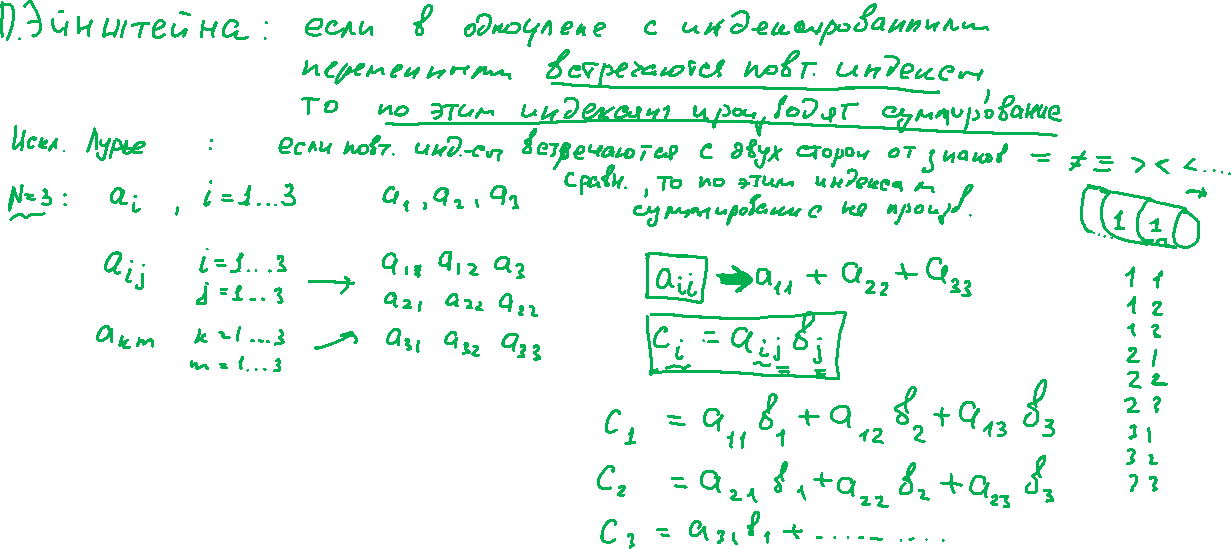 П.Эйнштейна: если в одночлене с индексированными
переменными встречаются повт. индексы,
то по этим индексам производят суммирование
Искл. Лурье : если повт. инд-сы встречаются с двух сторон от знаков = ≠ ≡ > < ≤....
сравн., то по этим индексам
суммирование не произв.
N=3: a_i , i=1...3 a_1, a_2, a_3
1 1
a_ij i=1...3 → a_11 a_12 a_3
j=1...3 a_21 a_22 a_22
a_km k=1...3 a_31 a_32 a_33
m=1...3
a_ii → a_11 + a_22 + a_33
c_i = a_ij b_j
c_1 = a_11 b_1 + a_12 b_2 + a_13 b_3
c_2 = a_21 b_1 + a_22 b_2 + a_23 b_3
c_3 = a_31 b_1 + ..........
1 1
1 2
1 2
2 1
2 2
2 3
3 1
3 2
3 3